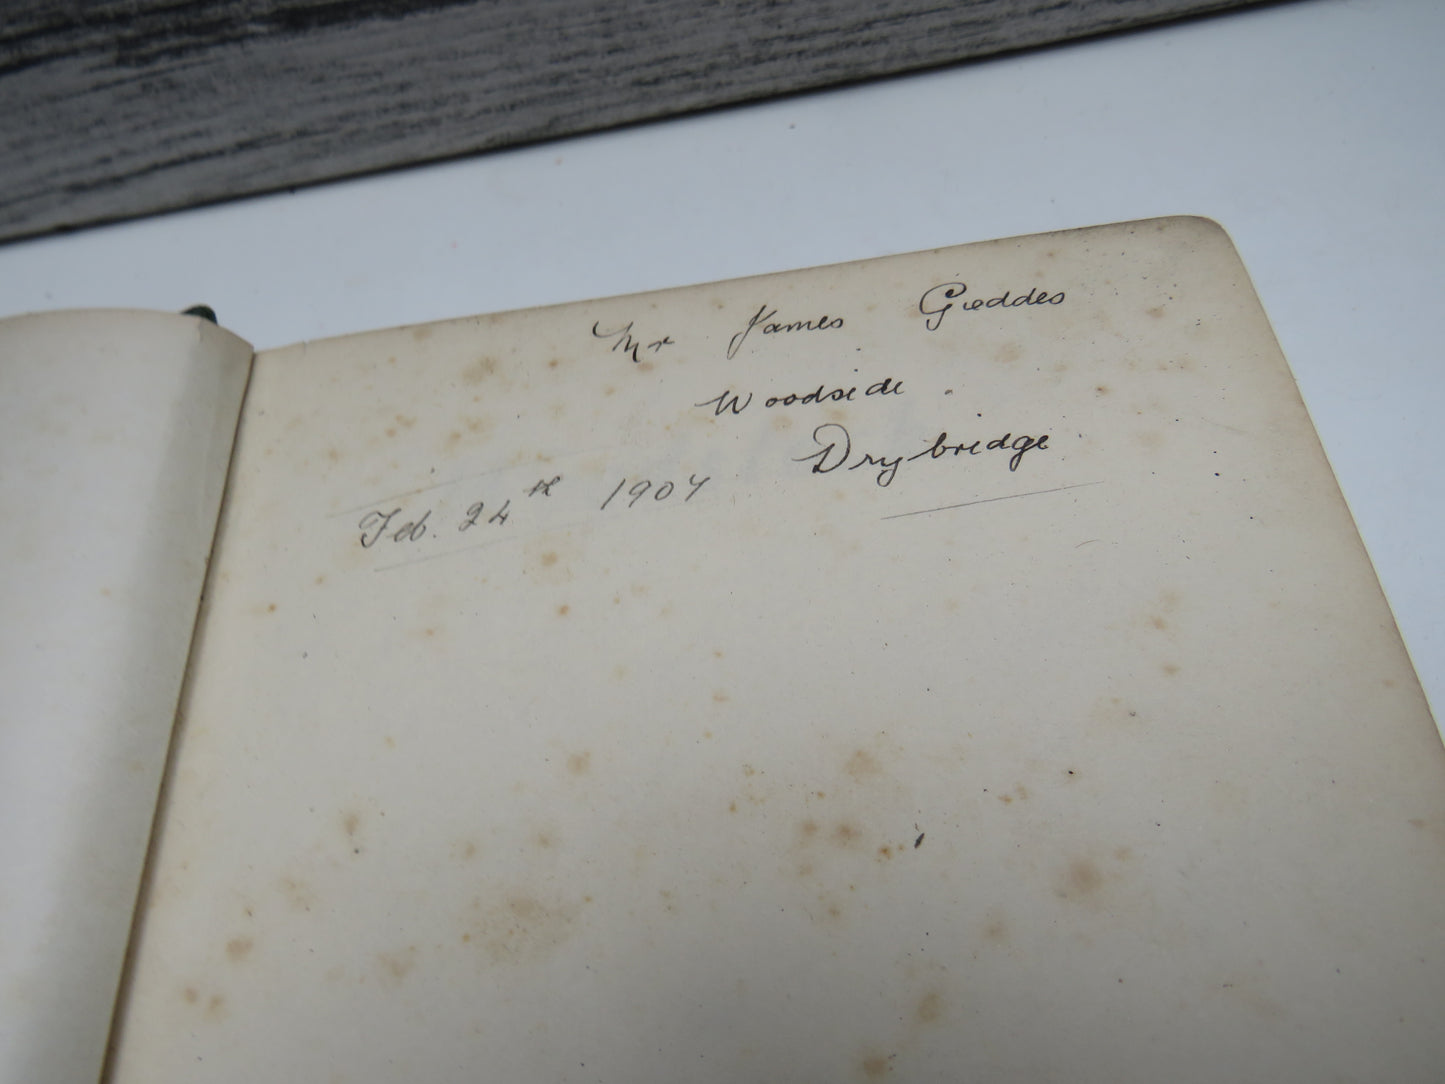 Mr James Geddes
Woodside
Drybridge
Feb. 24th 1907